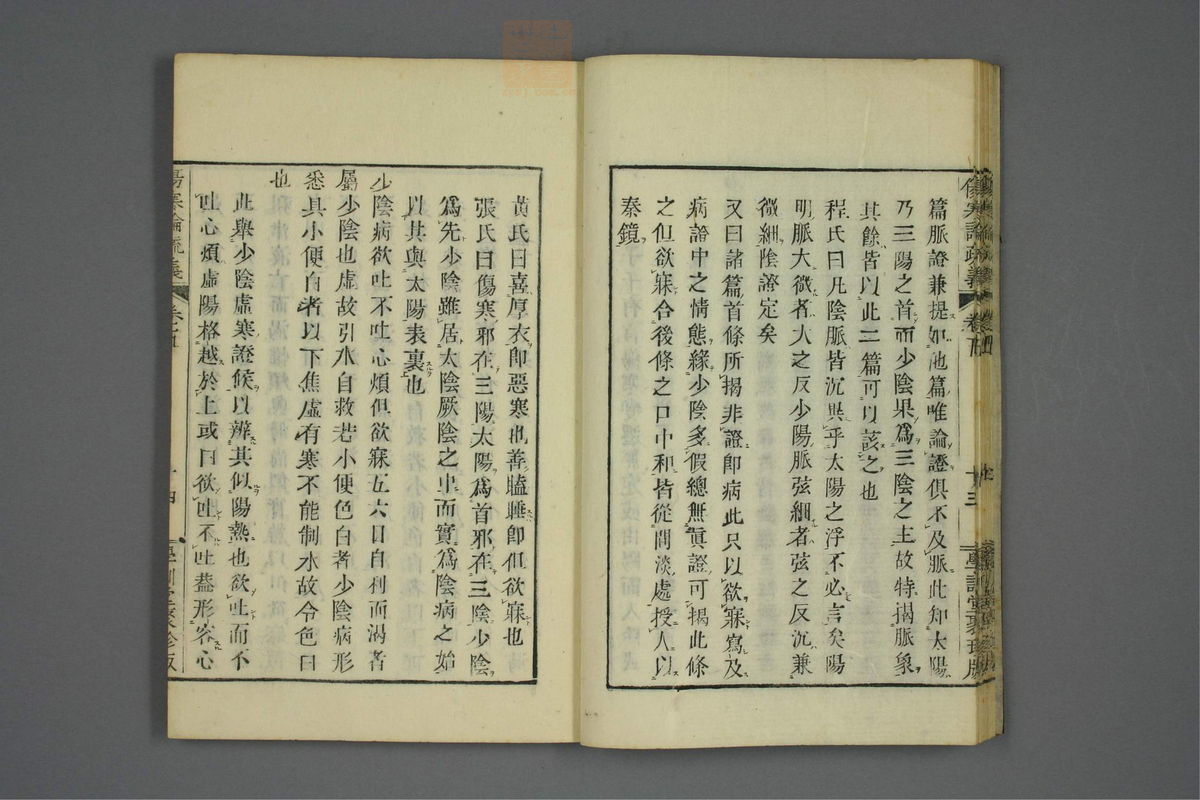 篇脈證兼提如他篇唯論證俱不及脈此知太陽
乃三陽之首而少陰果爲三陰之主故特揭脈象
其餘皆以此二篇可以該之也
程氏曰凡陰脈皆沉異乎太陽之浮不必言矣陽
明脈大微者大之反少陽脈弦細者弦之反沉兼
微細陰證定矣
又曰諸篇首條所揭非證即病此只以欲寐寫及
病證中之情態緣少陰多假總無眞證可揭此條
之但欲寐合後條之口中和皆從閒淡處授人以
秦鏡
黃氏曰喜厚衣即惡寒也善瞌睡即但欲寐也
張氏曰傷寒邪在三陽太陽爲首邪在三陰少陰
爲先少陰雖居太陰厥陰之中而實爲陰病之始
以其與太陽表裏也
少陰病欲吐不吐心煩但欲寐五六日自利而渴者
屬少陰也虛故引水自救若小便色白者少陰病形
悉具小便白者以下焦虛有寒不能制水故令色白
也
此舉少陰虛寒證候以辨其似陽熱也欲吐而不
吐心煩虛陽格越於上或曰欲吐不吐蓋形容心
傷寒論疏義